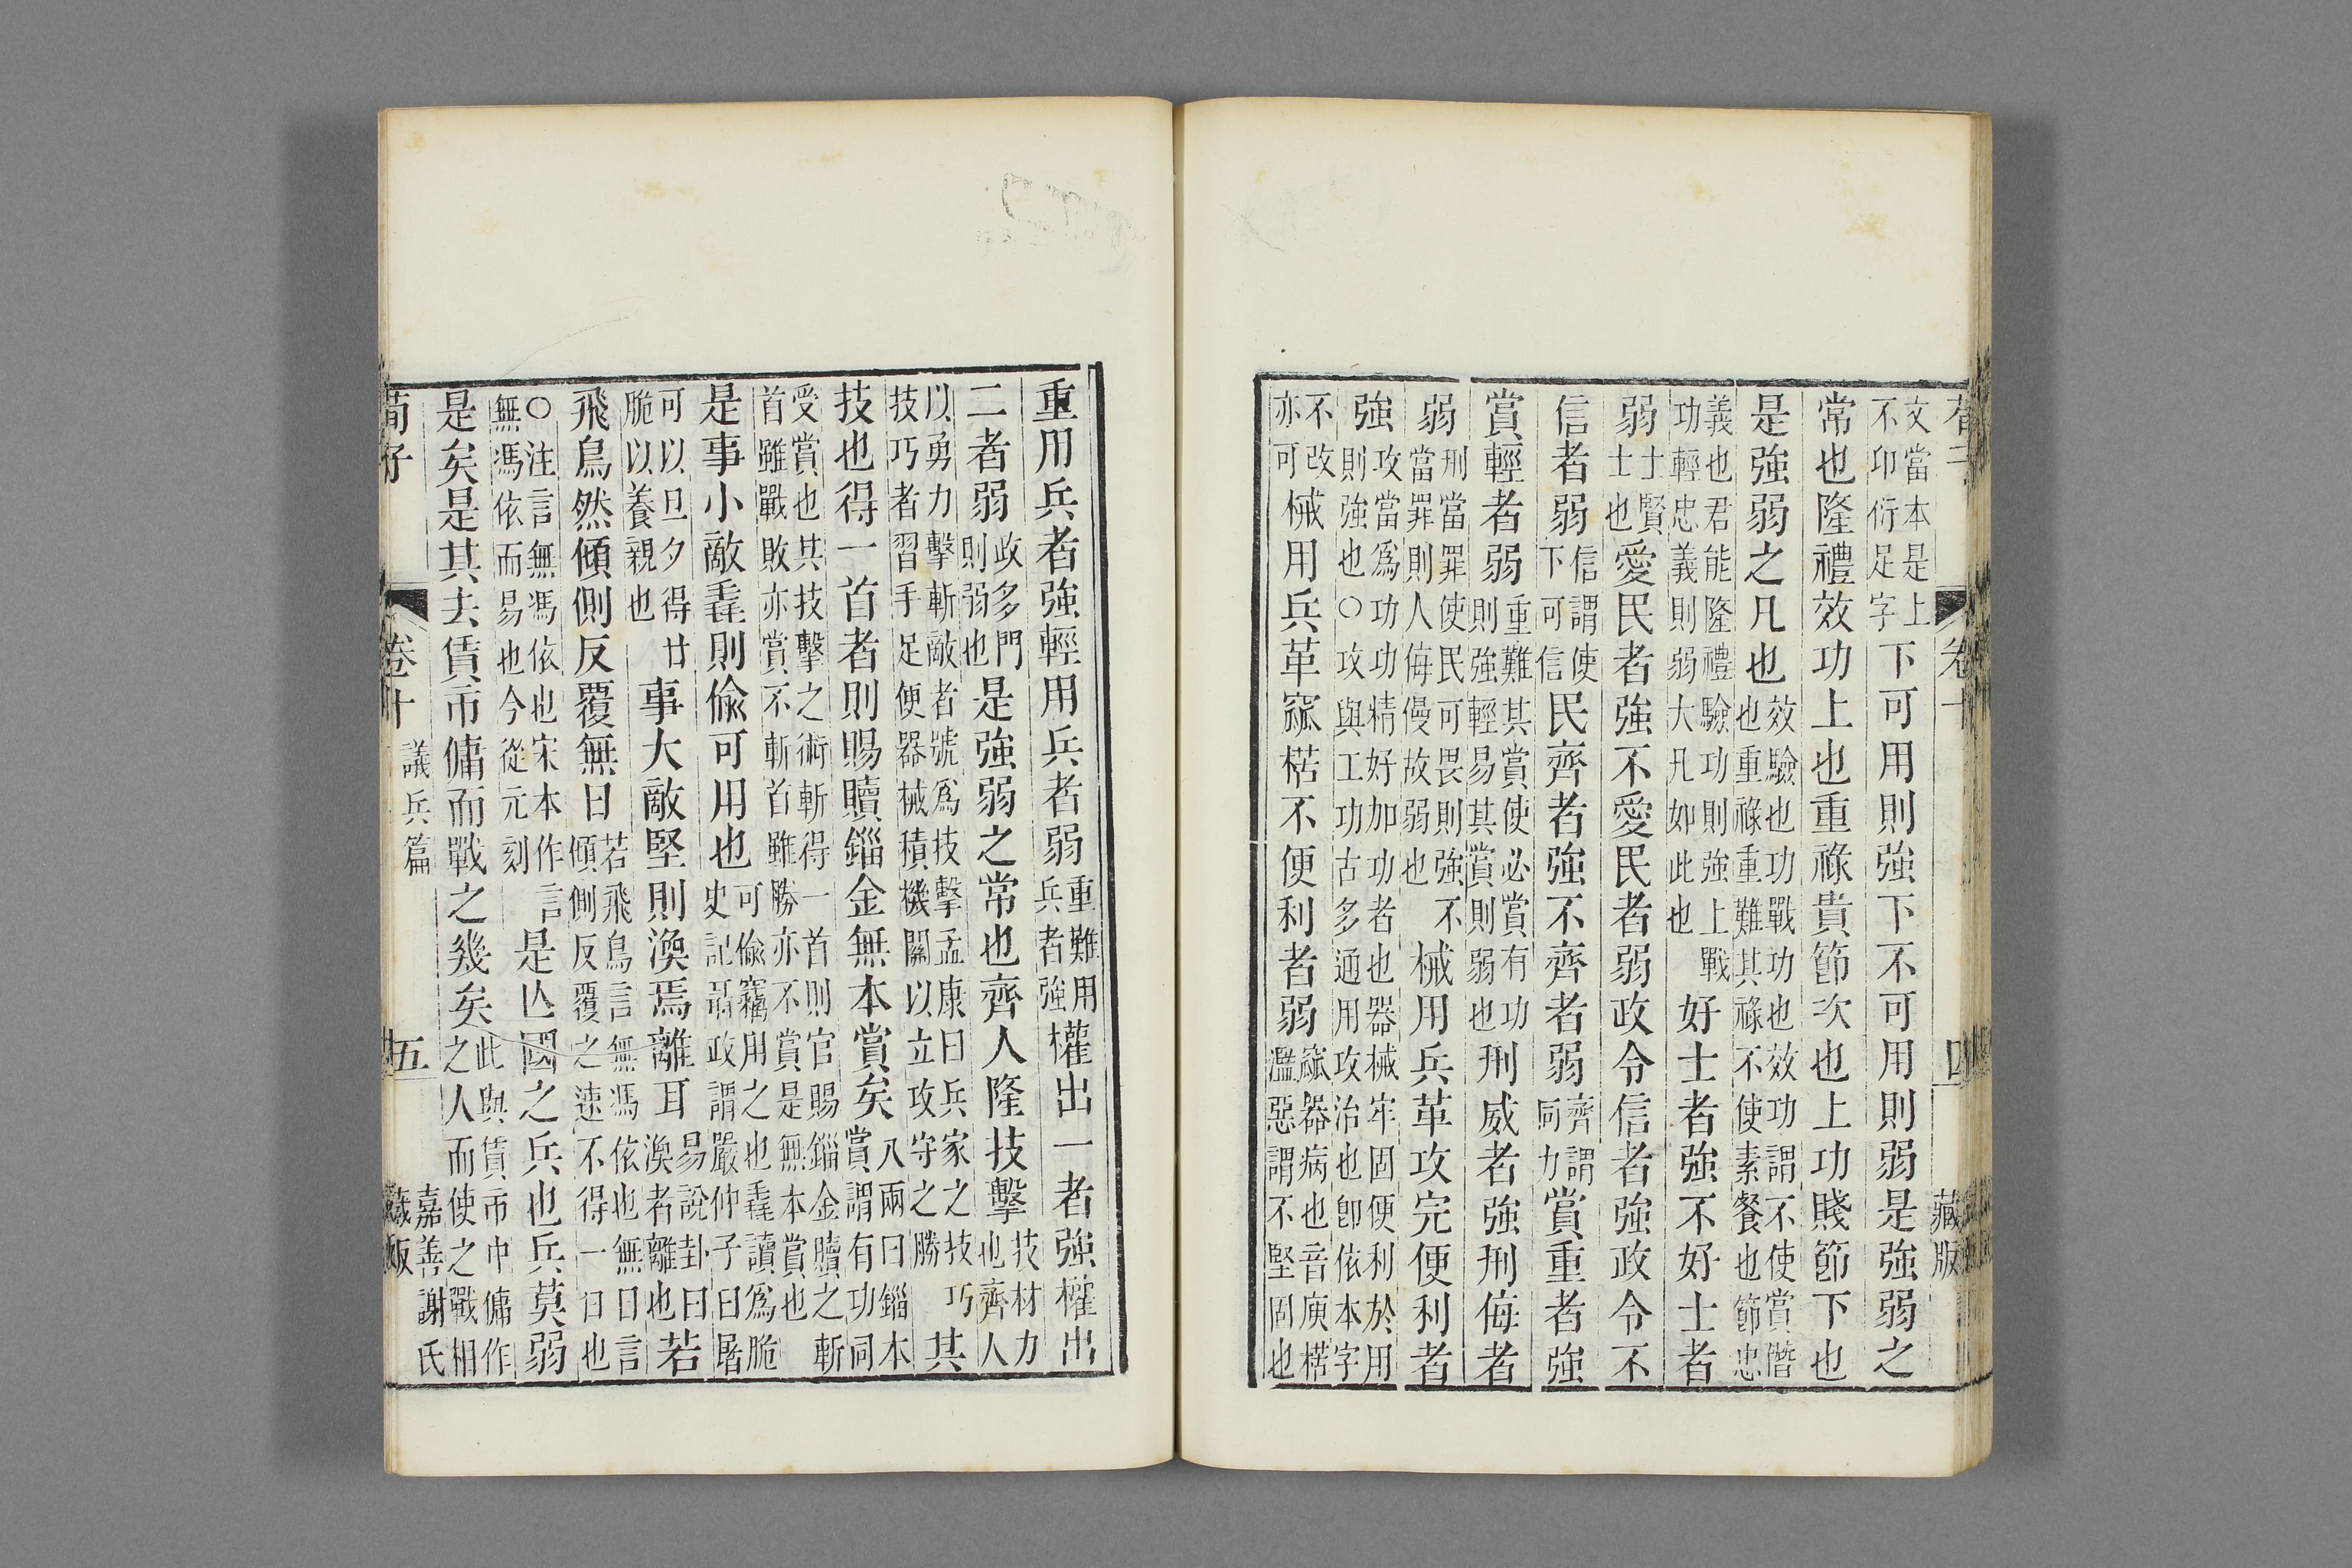 荀子 卷十 四 藏版
文當本是上不印衍足字下可用則強下不可用則弱是強弱之
常也隆禮效功上也重祿貴節次也上功賤節下也
是強弱之凡也效驗也功戰功也效功謂不使賞僭也重祿重難其祿不使素餐也節忠
義也君能隆禮驗功則強上戰功輕忠義則弱大凡如此也好士者強不好士者
弱士賢士也愛民者強不愛民者弱政令信者強政令不
信者弱信謂使下可信民齊者強不齊者弱齊謂同力賞重者強
賞輕者弱重難其賞使必賞有功則強輕易其賞則弱也刑威者強刑侮者
弱刑當罪使民可畏則強不當罪則人侮慢故弱也械用兵革攻完便利者
強攻當爲功功精好加功者也器械牢固便利於用則強也○攻與工功古多通用攻治也卽依本字
不改亦可械用兵革窳楛不便利者弱窳器病也音庾楛濫惡謂不堅固也
重用兵者強輕用兵者弱重難用兵者強權出一者強權出
二者弱政多門則弱也是強弱之常也齊人隆技擊技材力也齊人
以勇力擊斬敵者號爲技擊孟康曰兵家之技巧技巧者習手足便器械積機關以立攻守之勝其
技也得一首者則賜贖錙金無本賞矣八兩曰錙本賞謂有功同
受賞也其技擊之術斬得一首則官賜錙金贖之斬首雖戰敗亦賞不斬首雖勝亦不賞是無本賞也
是事小敵毳則偷可用也可偷竊用之也毳讀爲脆史記聶政謂嚴仲子曰屠
可以旦夕得甘脆以養親也事大敵堅則渙焉離耳易說卦曰渙者離也若
飛鳥然傾側反覆無日若飛鳥言無馮依也無日言傾側反覆之速不得一日也
○注言無馮依也宋本作言無馮依而易也今從元刻是亾國之兵也兵莫弱
是矣是其去賃市傭而戰之幾矣此與賃市中傭作之人而使之戰相
荀子 卷十 議兵篇 五 嘉善謝氏藏版